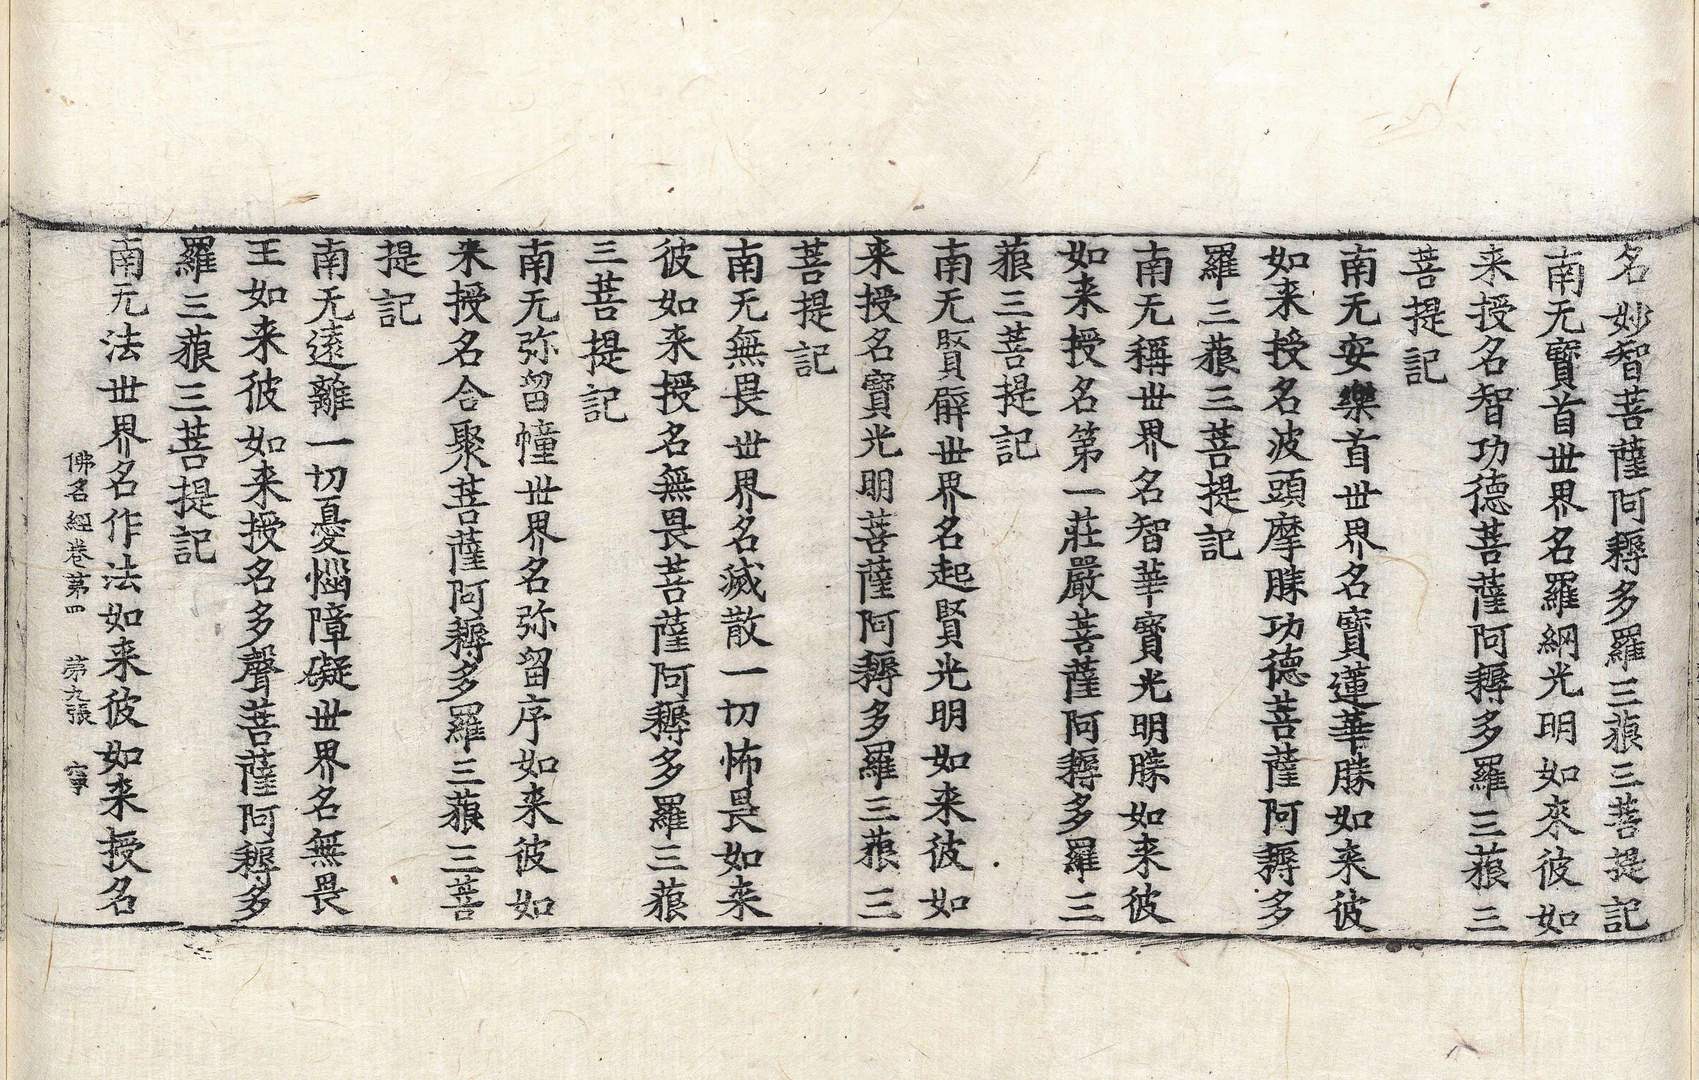 名妙智菩薩阿耨多羅三藐三菩提記
南无寶首世界名羅網光明如來彼如
来授名智功德菩薩阿耨多羅三藐三
菩提記
南无安樂首世界名寶蓮華勝如来彼
如来授名波頭摩勝功德菩薩阿耨多
羅三藐三菩提記
南无稱世界名智華寶光明勝如来彼
如来授名第一莊嚴菩薩阿耨多羅三
藐三菩提記
南无賢臂世界名起賢光明如来彼如
来授名寶光明菩薩阿耨多羅三藐三
菩提記
南无無畏世界名滅散一切怖畏如来
彼如来授名無畏菩薩阿耨多羅三藐
三菩提記
南无弥留幢世界名弥留序如来彼如
来授名合聚菩薩阿耨多羅三藐三菩
提記
南无遠離一切憂惱障礙世界名無畏
王如来彼如来授名多聲菩薩阿耨多
羅三藐三菩提記
南无法世界名作法如来彼如来授名
佛名經卷第四 第九張 寧